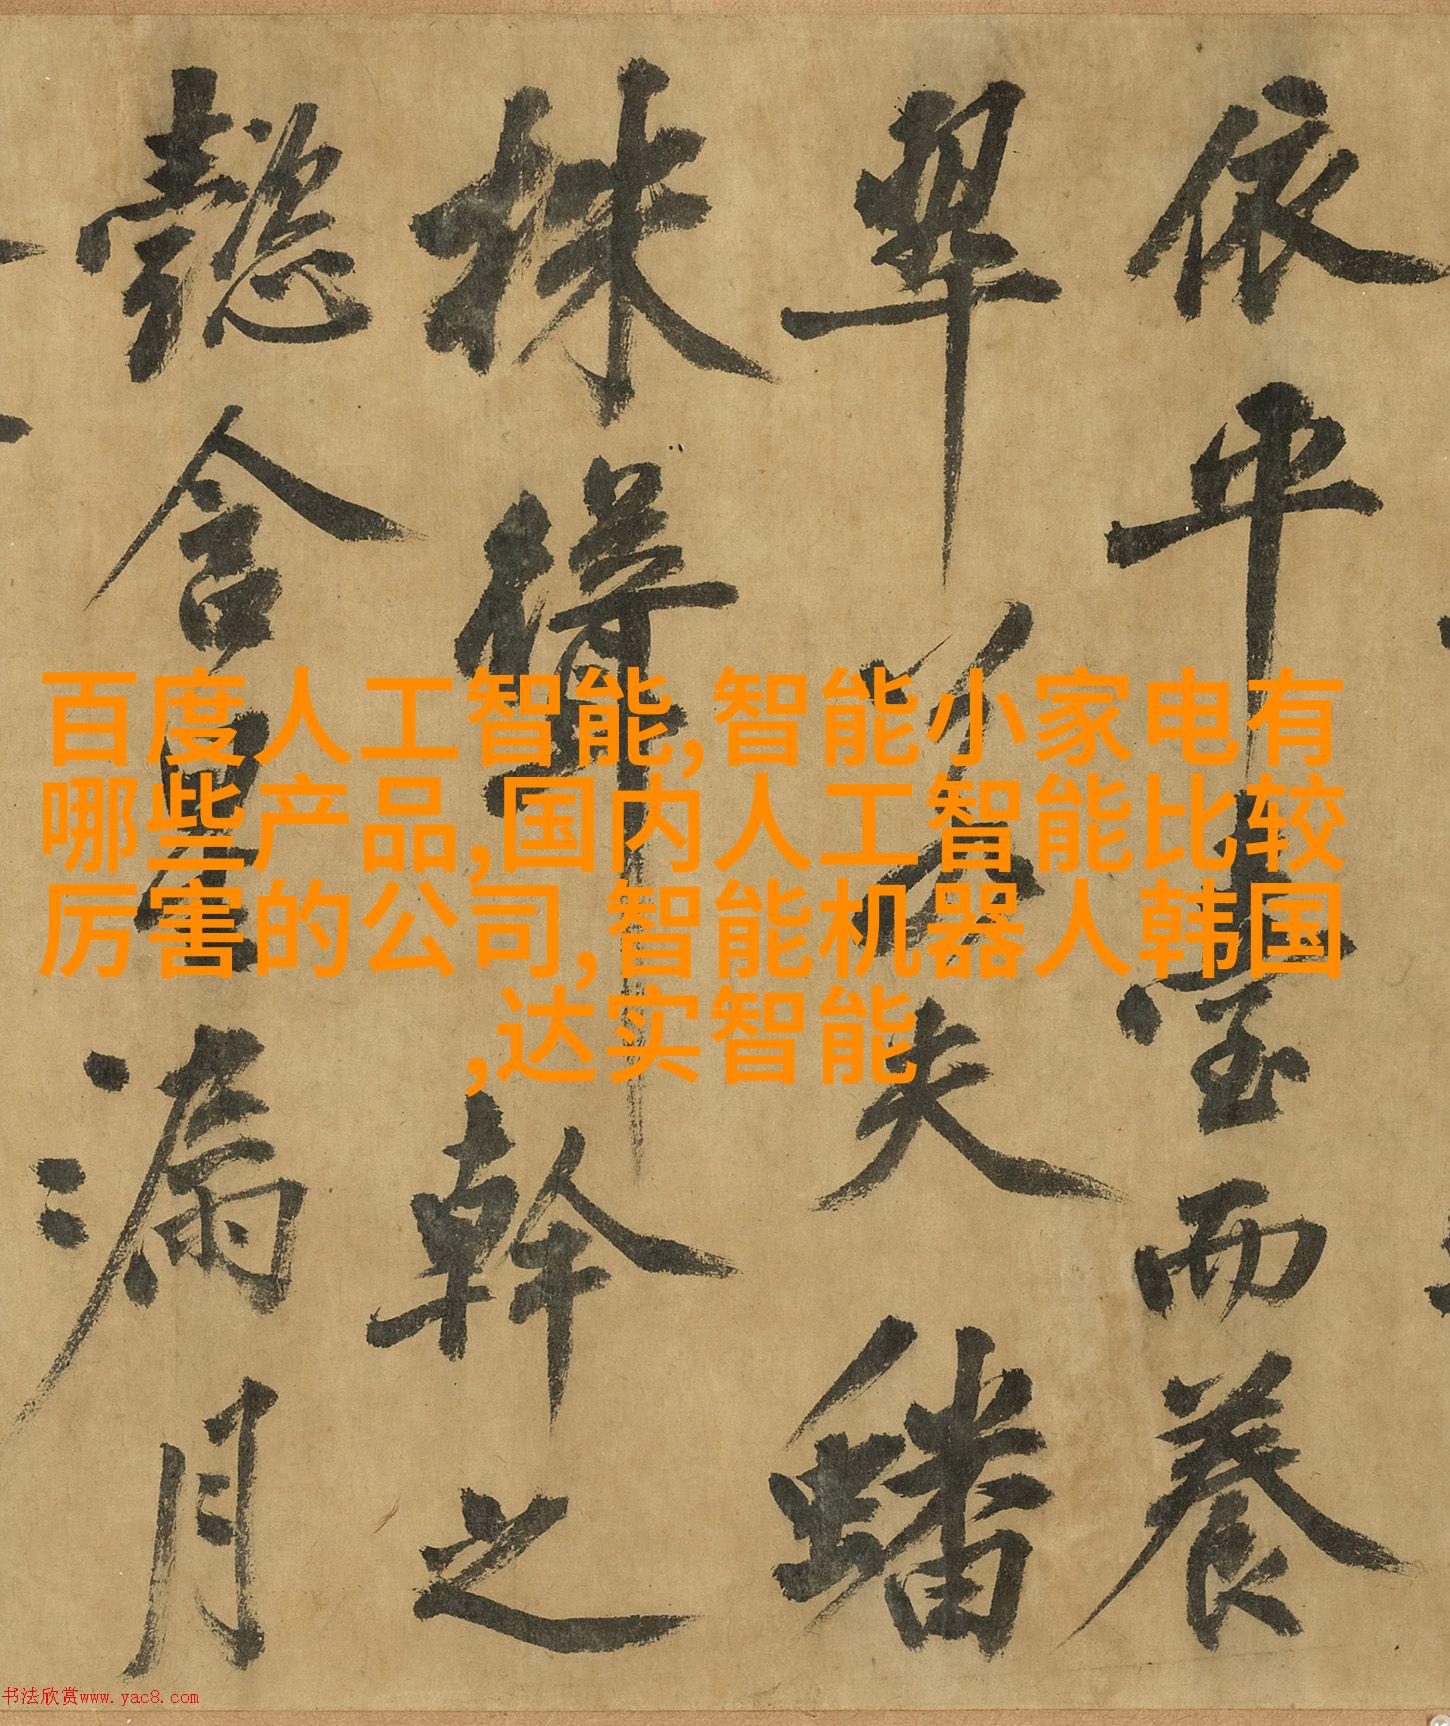 依平臺而養
翠若夫蟠
株幹之
懿含星漏月
百度人工智能,智能小家电有
哪些产品,国内人工智能比较
厉害的公司,智能机器人韩国
,达实智能
书法欣赏www.yac8.com